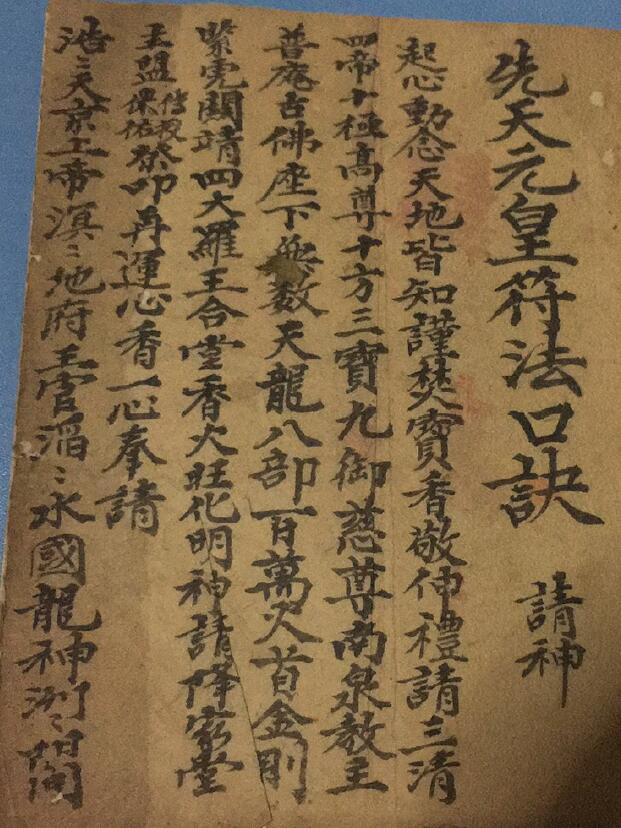 先天元皇符法口訣
請神
起心動念天地皆知謹焚寶香敬伸禮請三清
四帝十極高尊十方三寶九御慈尊南泉教主
普庵古佛座下無数天龍八部百萬火首金剛
紫雲關靖四大羅王合堂香火旺化明神請降家堂
王盟保佑傳授 叩再運心香一心奉請
浩〻天京上帝溟〻地府王官滔〻水國龍神 〻 間